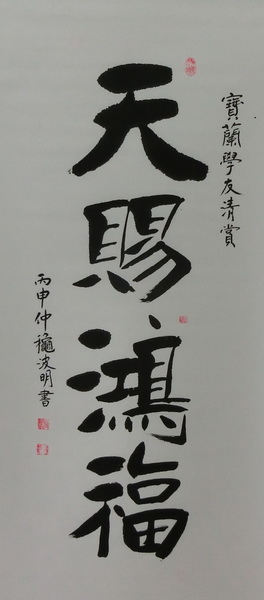 寶蘭學友清賞
天賜鴻福
丙申仲龝波明書